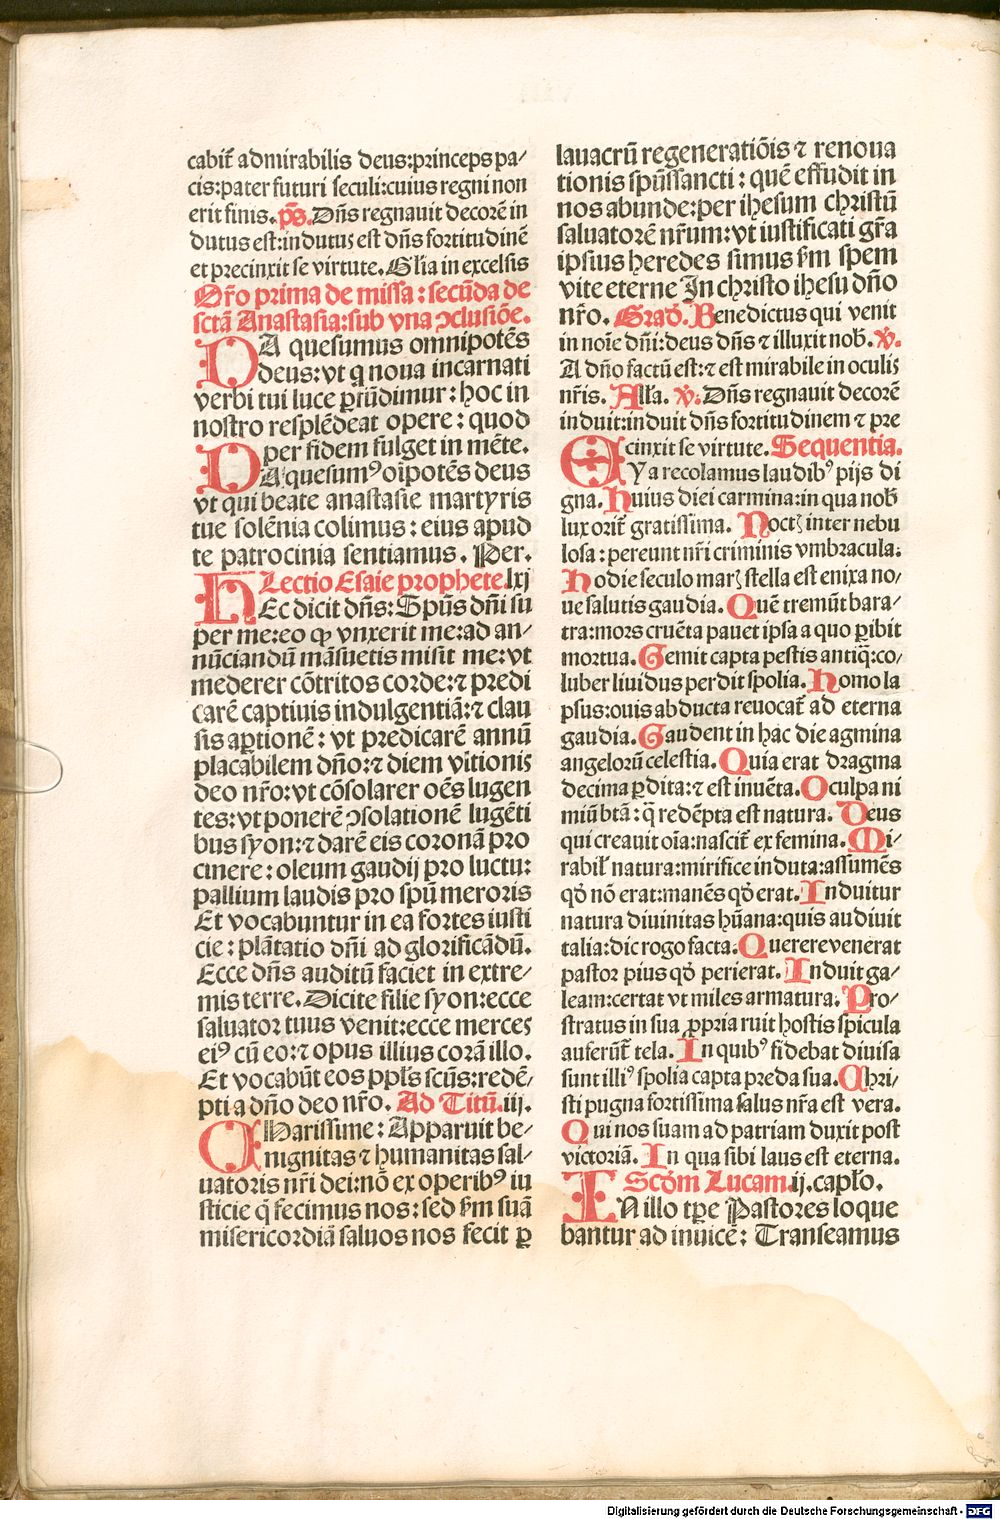 cabit̃ admirabilis deus:princeps pa⸗
cis:pater futuri seculi:cuius regni non
erit finis. p̄s. Dñs regnauit decorē in
dutus est:indutus est dñs fortitudinē
et precinxit se virtute. Gl̃ia in excelsis
Or̃o prima de missa: secūda de
sctā Anastasia:sub vna ꝯclusiōe.
DA quesumus omnipotēs
deus:vt q noua incarnati
verbi tui luce ꝑfūdimur: hoc in
nostro resplēdeat opere: quod
per fidem fulget in mēte.
DA quesumꝰ oīpotēs deus
vt qui beate anastasie martyris
tue solēnia colimus: eius apud
te patrocinia sentiamus. Per.
Lectio Esaie prophete.lxj
HEc dicit dñs: Spūs dñi su
per me:eo ꝙ vnxerit me:ad an⸗
nūciandū māsuetis misit me:vt
mederer cōtritos corde:⁊ predi
carē captiuis indulgentiā:⁊ clau
sis aꝑtionē: vt predicarē annū
placabilem dño:⁊ diem vltionis
deo nr̃o:vt cōsolarer oēs lugen
tes:vt ponerē ꝯsolationē lugēti
bus syon:⁊ darē eis coronā pro
cinere: oleum gaudij pro luctu:
pallium laudis pro spū meroris
Et vocabuntur in ea fortes iusti
cie: plātatio dñi ad glorificādū.
Ecce dñs auditū faciet in extre⸗
mis terre. Dicite filie syon:ecce
saluator tuus venit:ecce merces
eiꝰ cū eo:⁊ opus illius corā illo.
Et vocabūt eos ppl̃s scūs:redē⸗
pti a dño deo nr̃o. Ad Titū.iij.
CHarissime: Apparuit be⸗
nignitas ⁊ humanitas sal⸗
uatoris nr̃i dei:nō ex operibꝰ iu
sticie q̄ fecimus nos: sed s̄m suā
misericordiā saluos nos fecit ꝑ
lauacrū regeneratiōis ⁊ renoua
tionis spūssancti: quē effudit in
nos abunde:per ihesum christū
saluatorē nr̃um:vt iustificati gr̃a
ipsius heredes simus s̄m spem
vite eterne In christo ihesu dño
nr̃o. Grad̃. Benedictus qui venit
in noīe dñi:deus dñs ⁊ illuxit nob̃. v̄.
A dño factū est:⁊ est mirabile in oculis
nr̃is. All̃a. v̄. Dñs regnauit decorē
induit:induit dñs fortitudinem ⁊ pre
cinxit se virtute. Sequentia.
EYa recolamus laudibꝰ pijs di
gna. Huius diei carmina:in qua nob̃
lux orit̃ gratissima. Noctꝭ inter nebu
losa: pereunt nr̃i criminis vmbracula.
Hodie seculo marꝭ stella est enixa no⸗
ue salutis gaudia. Quē tremūt bara⸗
tra:mors cruēta pauet ipsa a quo ꝑibit
mortua. Gemit capta pestis antiq̄:co⸗
luber liuidus perdit spolia. Homo la
psus:ouis abducta reuocat̃ ad eterna
gaudia. Gaudent in hac die agmina
angelorū celestia. Quia erat dragma
decima ꝑdita:⁊ est inuēta. O culpa ni
miū btā: q̄ redēpta est natura. Deus
qui creauit oīa:nascit̃ ex femina. Mi⸗
rabil̃ natura:mirifice induta:assumēs
qd̃ nō erat:manēs qd̃ erat. Induitur
natura diuinitas hūana:quis audiuit
talia:dic rogo facta. Querere venerat
pastor pius qd̃ perierat. Induit ga⸗
leam:certat vt miles armatura. Pro⸗
stratus in sua ꝓpria ruit hostis spicula
auferūt̃ tela. In quibꝰ fidebat diuisa
sunt illiꝰ spolia capta preda sua. Chri⸗
sti pugna fortissima salus nr̃a est vera.
Qui nos suam ad patriam duxit post
victoriā. In qua sibi laus est eterna.
Scd̃m Lucam.ij.capl̃o.
IN illo tp̄e Pastores loque
bantur ad inuicē: Transeamus
Digitalisierung gefördert durch die Deutsche Forschungsgemeinschaft - DFG